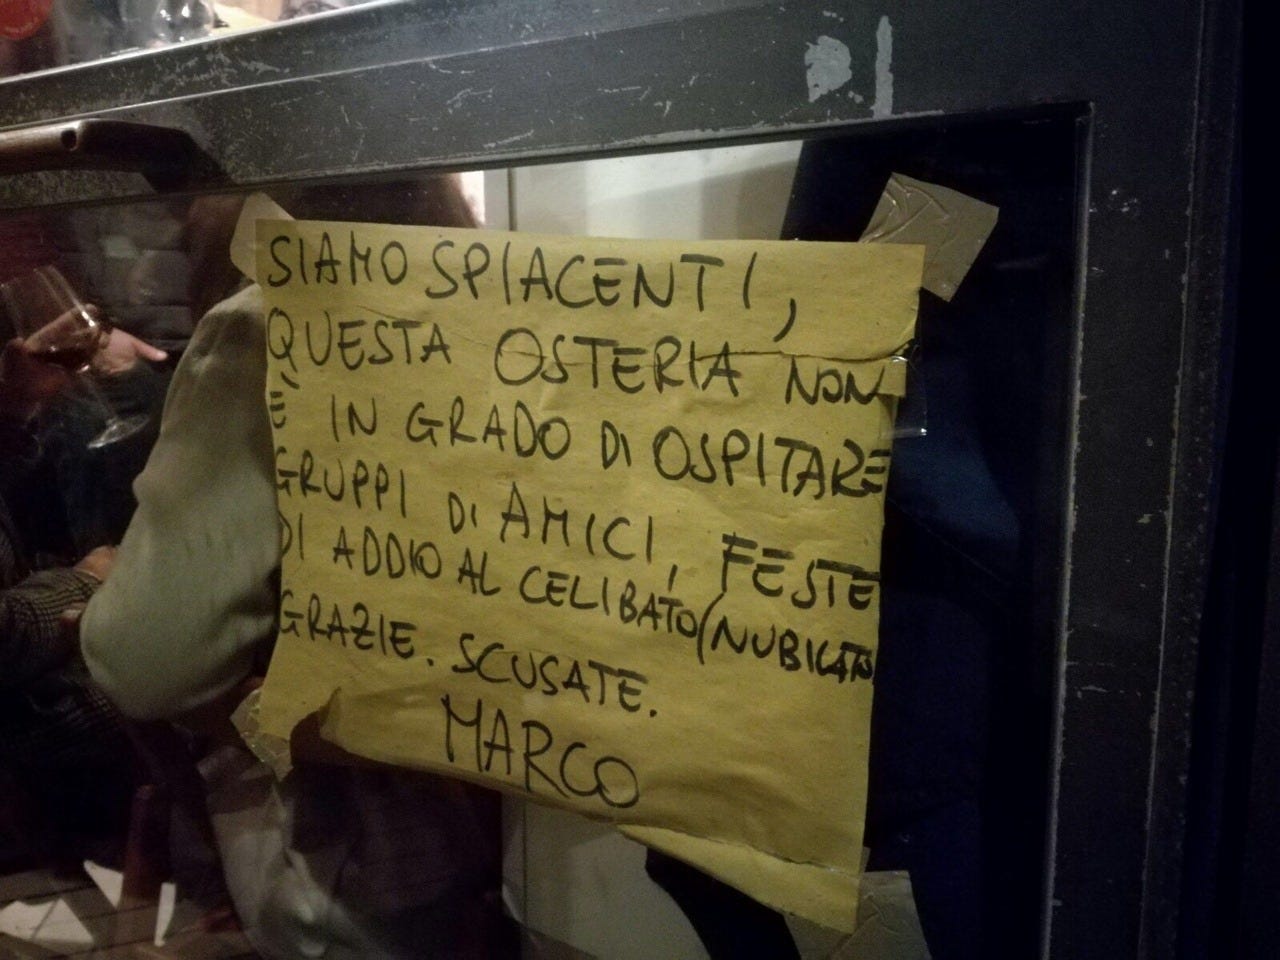 SIAMO SPIACENTI,
QUESTA OSTERIA NON
È IN GRADO DI OSPITARE
GRUPPI DI AMICI, FESTE
DI ADDIO AL CELIBATO (NUBILATO
GRAZIE. SCUSATE.
MARCO